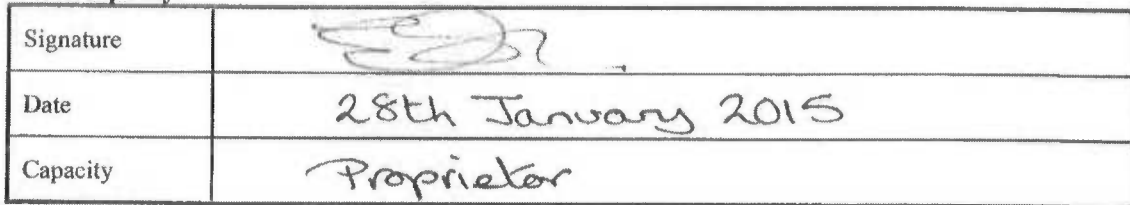 Signature
Date 28th January 2015
Capacity Proprietor